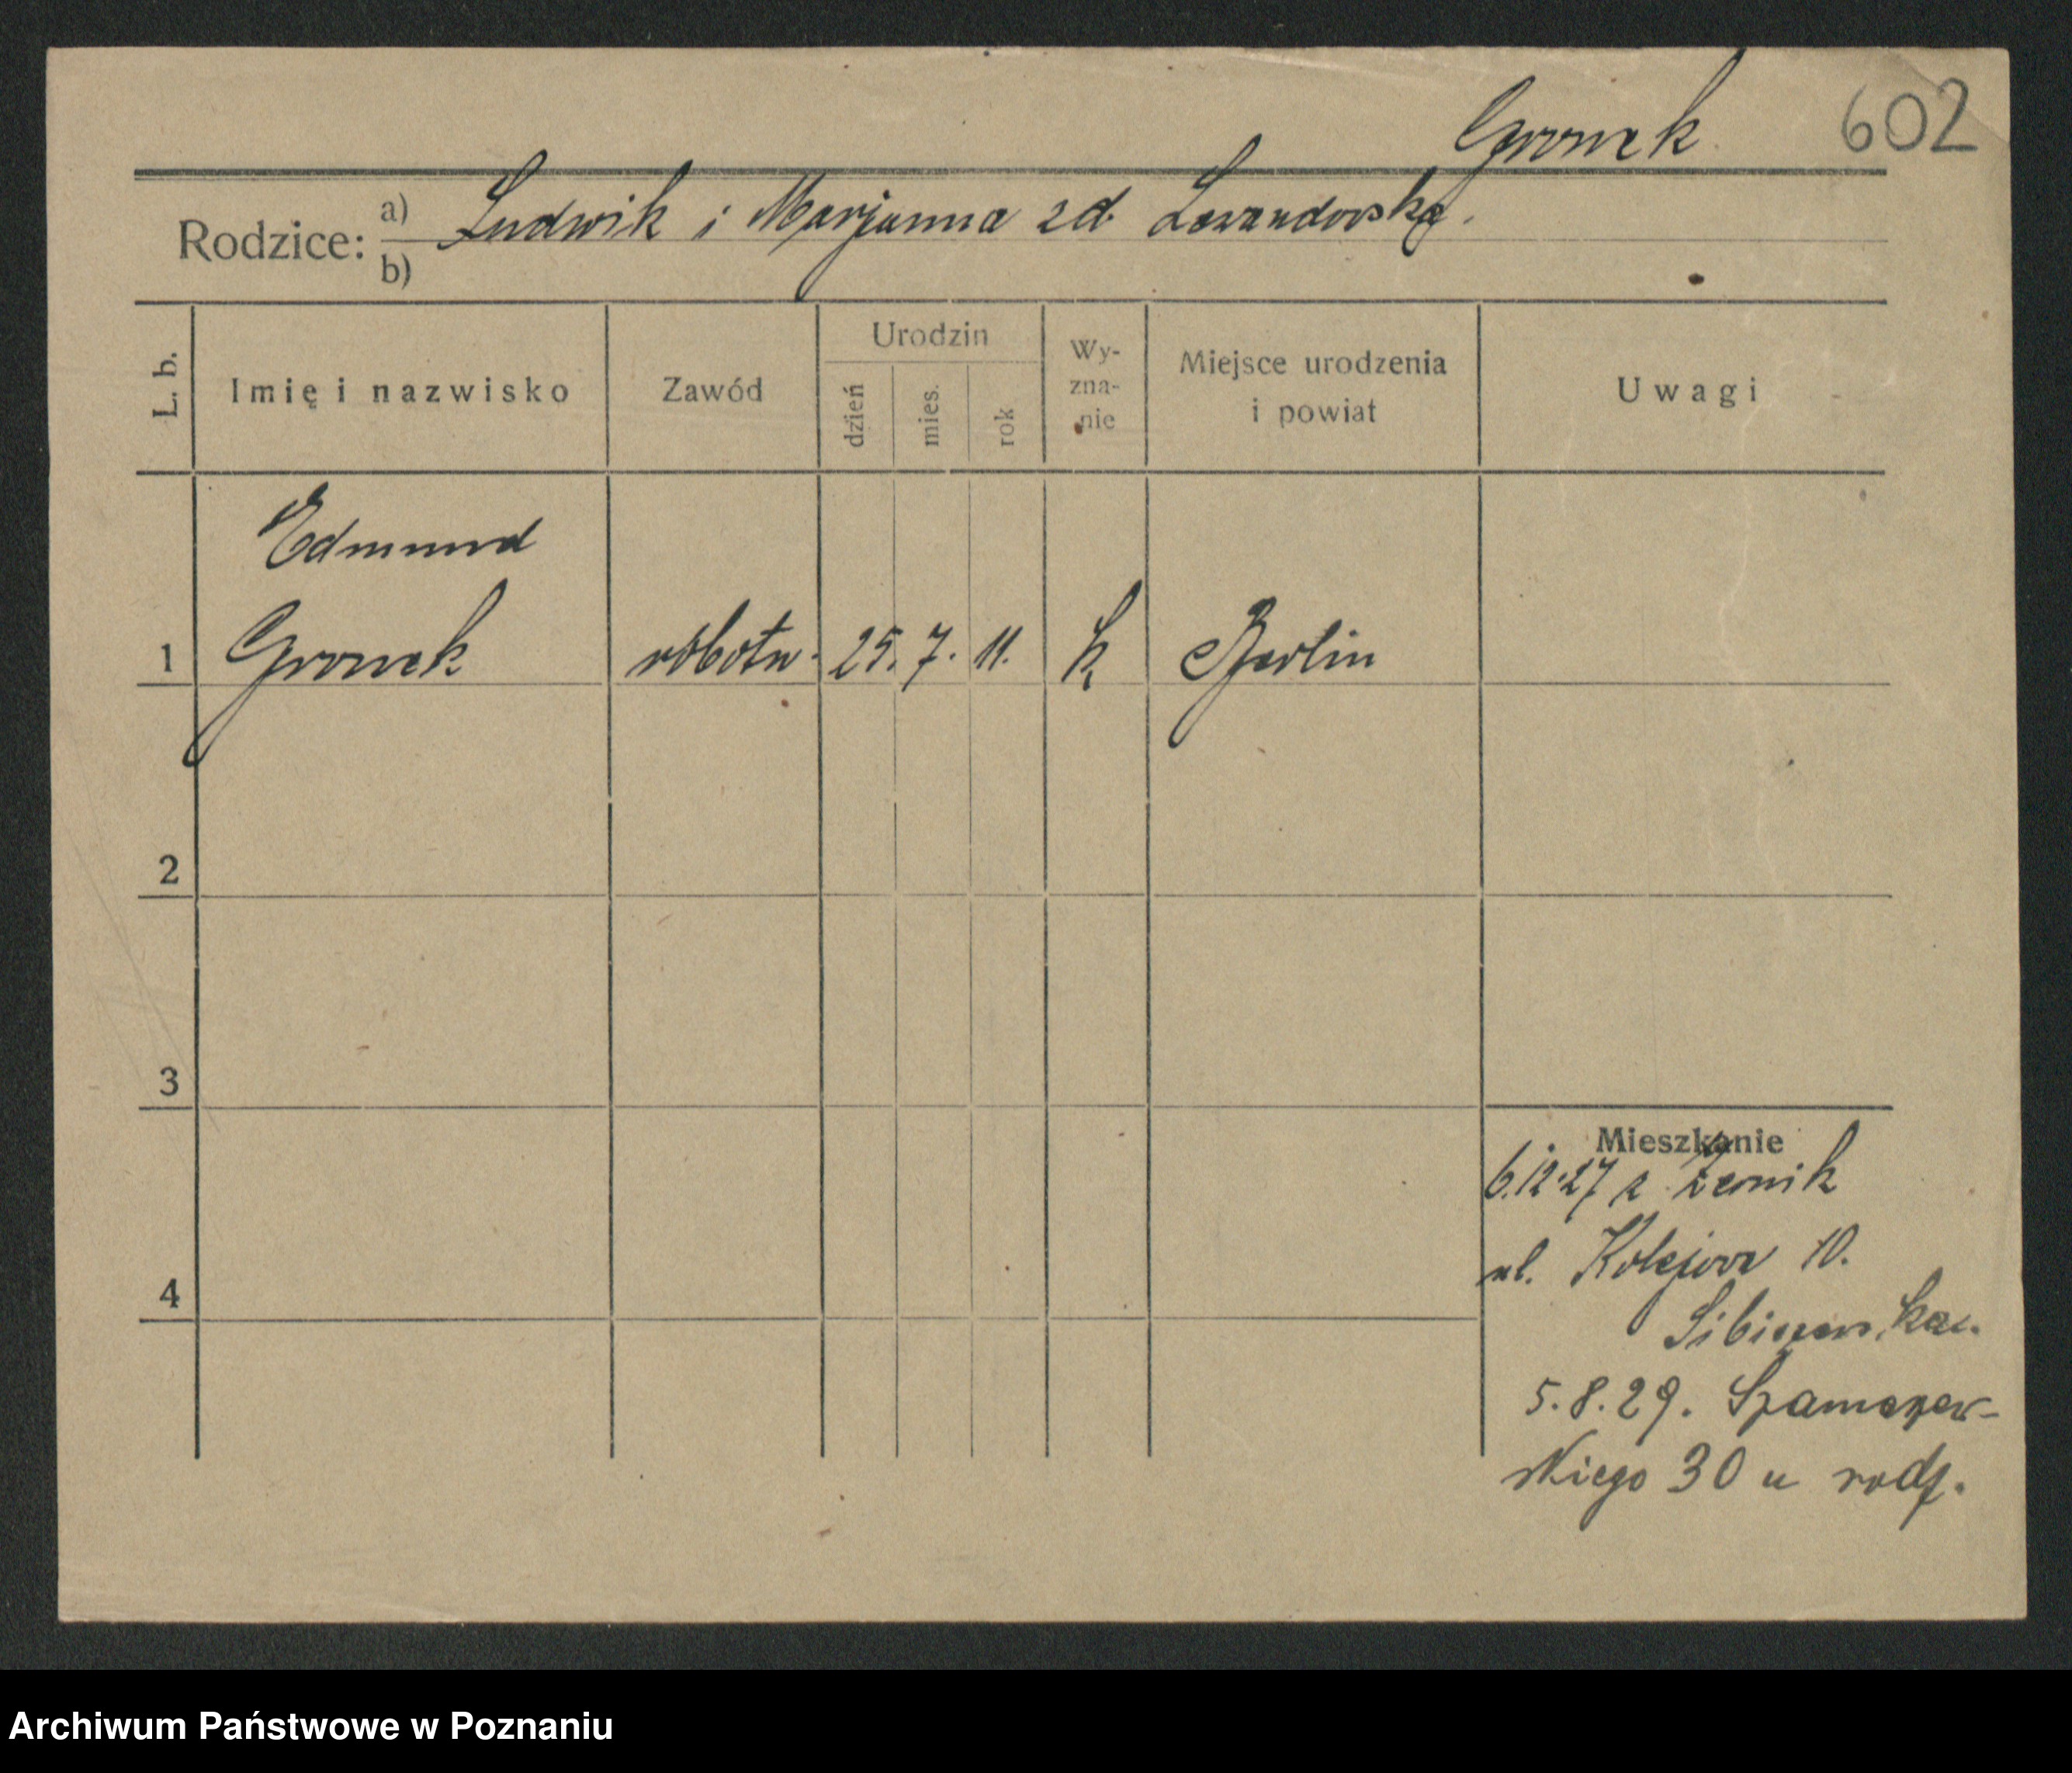 Gronek 602
Rodzice: a) Ludwik i Marjanna zd. Lewandowska.
b)
L. b.
Imię i nazwisko
Zawód
Urodzin
dzień
mies.
rok
Wy-
zna-
nie
Miejsce urodzenia
i powiat
Uwagi
Edmund
1 Gronek robotn. 25. 7. 11. k Berlin
2
3
4
Mieszkanie
6.12.27 z Żernik
ul. Kolejowa 10.
5.8.29. Szamarzew-
skiego 30 u rodz.
Archiwum Państwowe w Poznaniu